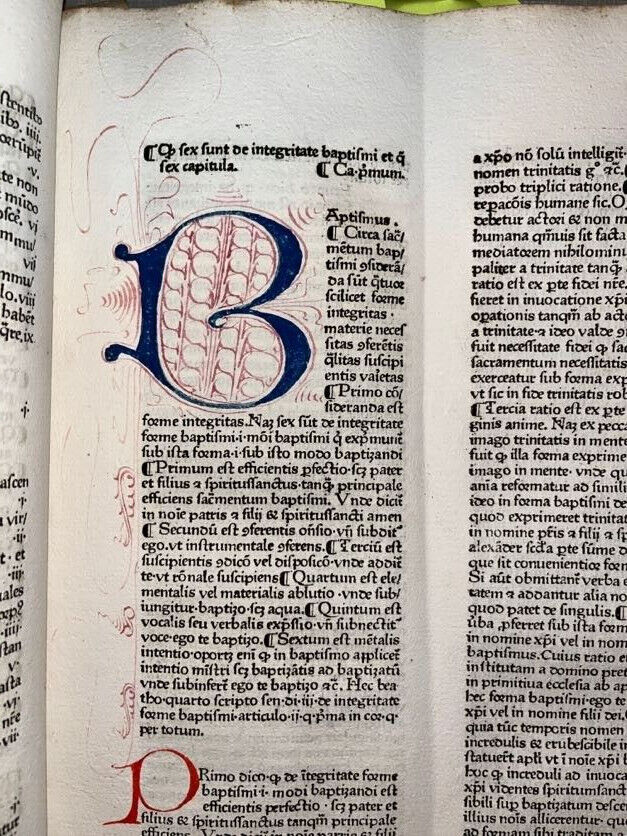 ¶ Qꝙ sex sunt de integritate baptismi et q̃
sex capitula. ¶ Ca. p̃mum.
BAptismus.
¶ Circa sac̃/
mẽtum bap/
tismi ꝯsiderã/
da sũt q̃tuor
scilicet forme
integritas ·
materie neces
sitas ꝯferẽtis
q̃litas suscipi
entis vaietas
¶ Primo cõ/
sideranda est
forme integritas. Naz sex sũt de integritate
forme baptismi · i · mõi baptismi q̃ exp̃munt̃
sub ista forma · i · sub isto modo baptizandi
¶ Primum est efficientis ꝑfectio · scz pater
et filius ⁊ spiritussanctus · tanq̃ principale
efficiens sac̃mentum baptismi. Vnde dicit̃
in noĩe patris ⁊ filij ⁊ spiritussancti amen
¶ Secundũ est ꝯferentis oñsio · vñ subdit᷑
ego. vt instrumentale ꝯferens. ¶ Terciũ est
suscipientis ꝯdicõ vel disposicõ · vnde addit̃
te · vt rõnale suscipiens ¶ Quartum est ele/
mentalis vel materialis ablutio · vnde sub/
iungitur · baptizo · scz aqua. ¶ Quintum est
vocalis seu verbalis exp̃ssio · vñ subnectit᷑
voce · ego te baptizo. ¶ Sextum est mẽtalis
intentio · oportz eni᷑ ꝙ in baptismo applicet̃
intentio mĩstri scz baptizãtis ad baptizatũ
vnde subinfert̃ ego te baptizo ⁊c̃. Hec bea
tho · quarto scripto sen · di · iij · de integritate
forme baptismi · articulo · ij · q · p̃ma in cor · q ·
per totum.
PRimo dico · ꝙ de ĩtegritate forme
baptismi · i · modi baptizandi est
efficientis perfectio · scz pater et
filius ⁊ spiritussanctus tanq̃m principale
a xp̃o nõ solũ intelligit̃
nomen trinitatis g° ⁊c̃.
probo triplici ratione.
repacõis humane sic. O
debetur actori ⁊ non m
humana q̃muis sit facta
mediatorem nihilominu
paliter a trinitate tanq̃
ratio est ex ꝑte fidei nr̃e.
fieret in inuocatione xp̃i
oꝑationis tanq̃m ab acto
a trinitate ⁊ ideo valde
fuit necessitate fidei ꝙ sac
sacramentum necessitatis
exerceatur sub forma exp
vt sic in fide trinitatis rob
¶ Tercia ratio est ex ꝑte
ginis anime. Naz ex pecca
imago trinitatis in mente
fuit ꝙ illa forma exprime
imago in mente · vnde qu
anĩa reformatur ad simili
ideo in forma baptismi de
quod exprimeret trinitat
in nomine p̃tis ⁊ filij ⁊ sp
alexãder scd̃a ꝑte sũme d
que sit conuenientior form
Si aũt obmittant̃ verba e
tatem ⁊ addantur alia no
quod patet de singulis.
ũba, ꝓferret sub ista form
in nomine xp̃i vel in nom
baptismus. Cuius ratio e
institutam a domino pret
in primitiua ecclesia ab ap
hec forma baptismi · ego te
xp̃i vel in nomine filij dei.
quia tũc temporis nomen
incredulis ⁊ erubescibile i
statuer̃t apl̃i vt ĩ noĩe xp̃i
hoc ꝙ increduli ad inuoca
xp̃i videntes spiritumsanct
sibili sup baptizatum desce
illius nois allicerentur ·